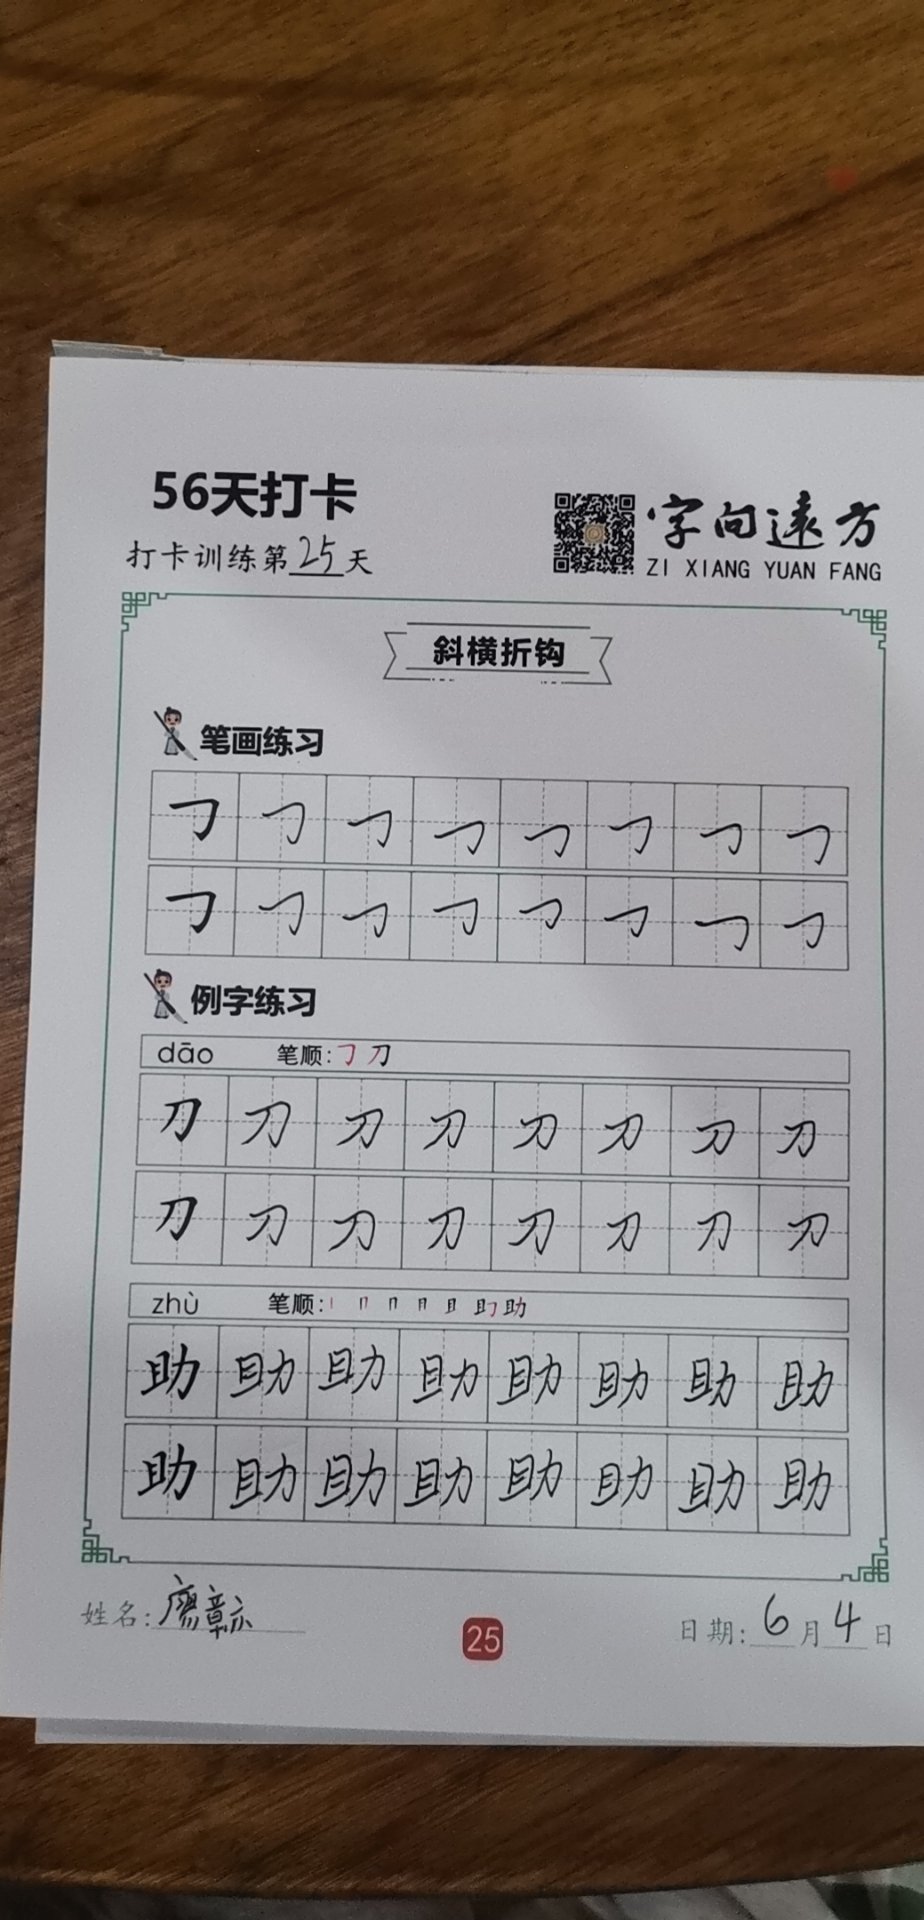 56天打卡
打卡训练第25天
字向远方
ZI XIANG YUAN FANG
斜横折钩
笔画练习
㇆ ㇆ ㇆ ㇆ ㇆ ㇆ ㇆ ㇆
㇆ ㇆ ㇆ ㇆ ㇆ ㇆ ㇆ ㇆
例字练习
dāo 笔顺:㇆ 刀
刀 刀 刀 刀 刀 刀 刀 刀
刀 刀 刀 刀 刀 刀 刀 刀
zhù 笔顺:丨 冂 冂 月 且 助
助 助 助 助 助 助 助 助
助 助 助 助 助 助 助 助
姓名:廖
25
日期:6月4日